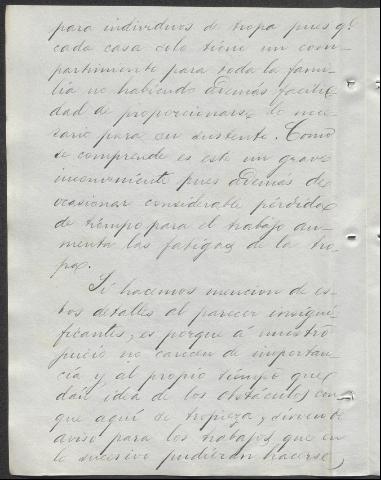 para individuos de tropa pues qe.
cada casa solo tiene un com-
partimento para toda la fami-
lia no habiendo además facili-
dad de proporcionarse lo nece-
sario para su sustento. Como
se comprende es este un grave
inconveniente pues además de
ocasionar considerable pérdida
de tiempo para el trabajo au-
menta las fatigas de la tro-
pa.
Si hacemos mencion de es-
tos detalles al parecer insigni-
ficantes, es porque á nuestro
juicio no carecen de importan-
cia y al propio tiempo que
dán idea de los obstáculos con
que aquí se tropieza, sirven de
aviso para los trabajos que en
lo sucesivo pudieran hacerse,